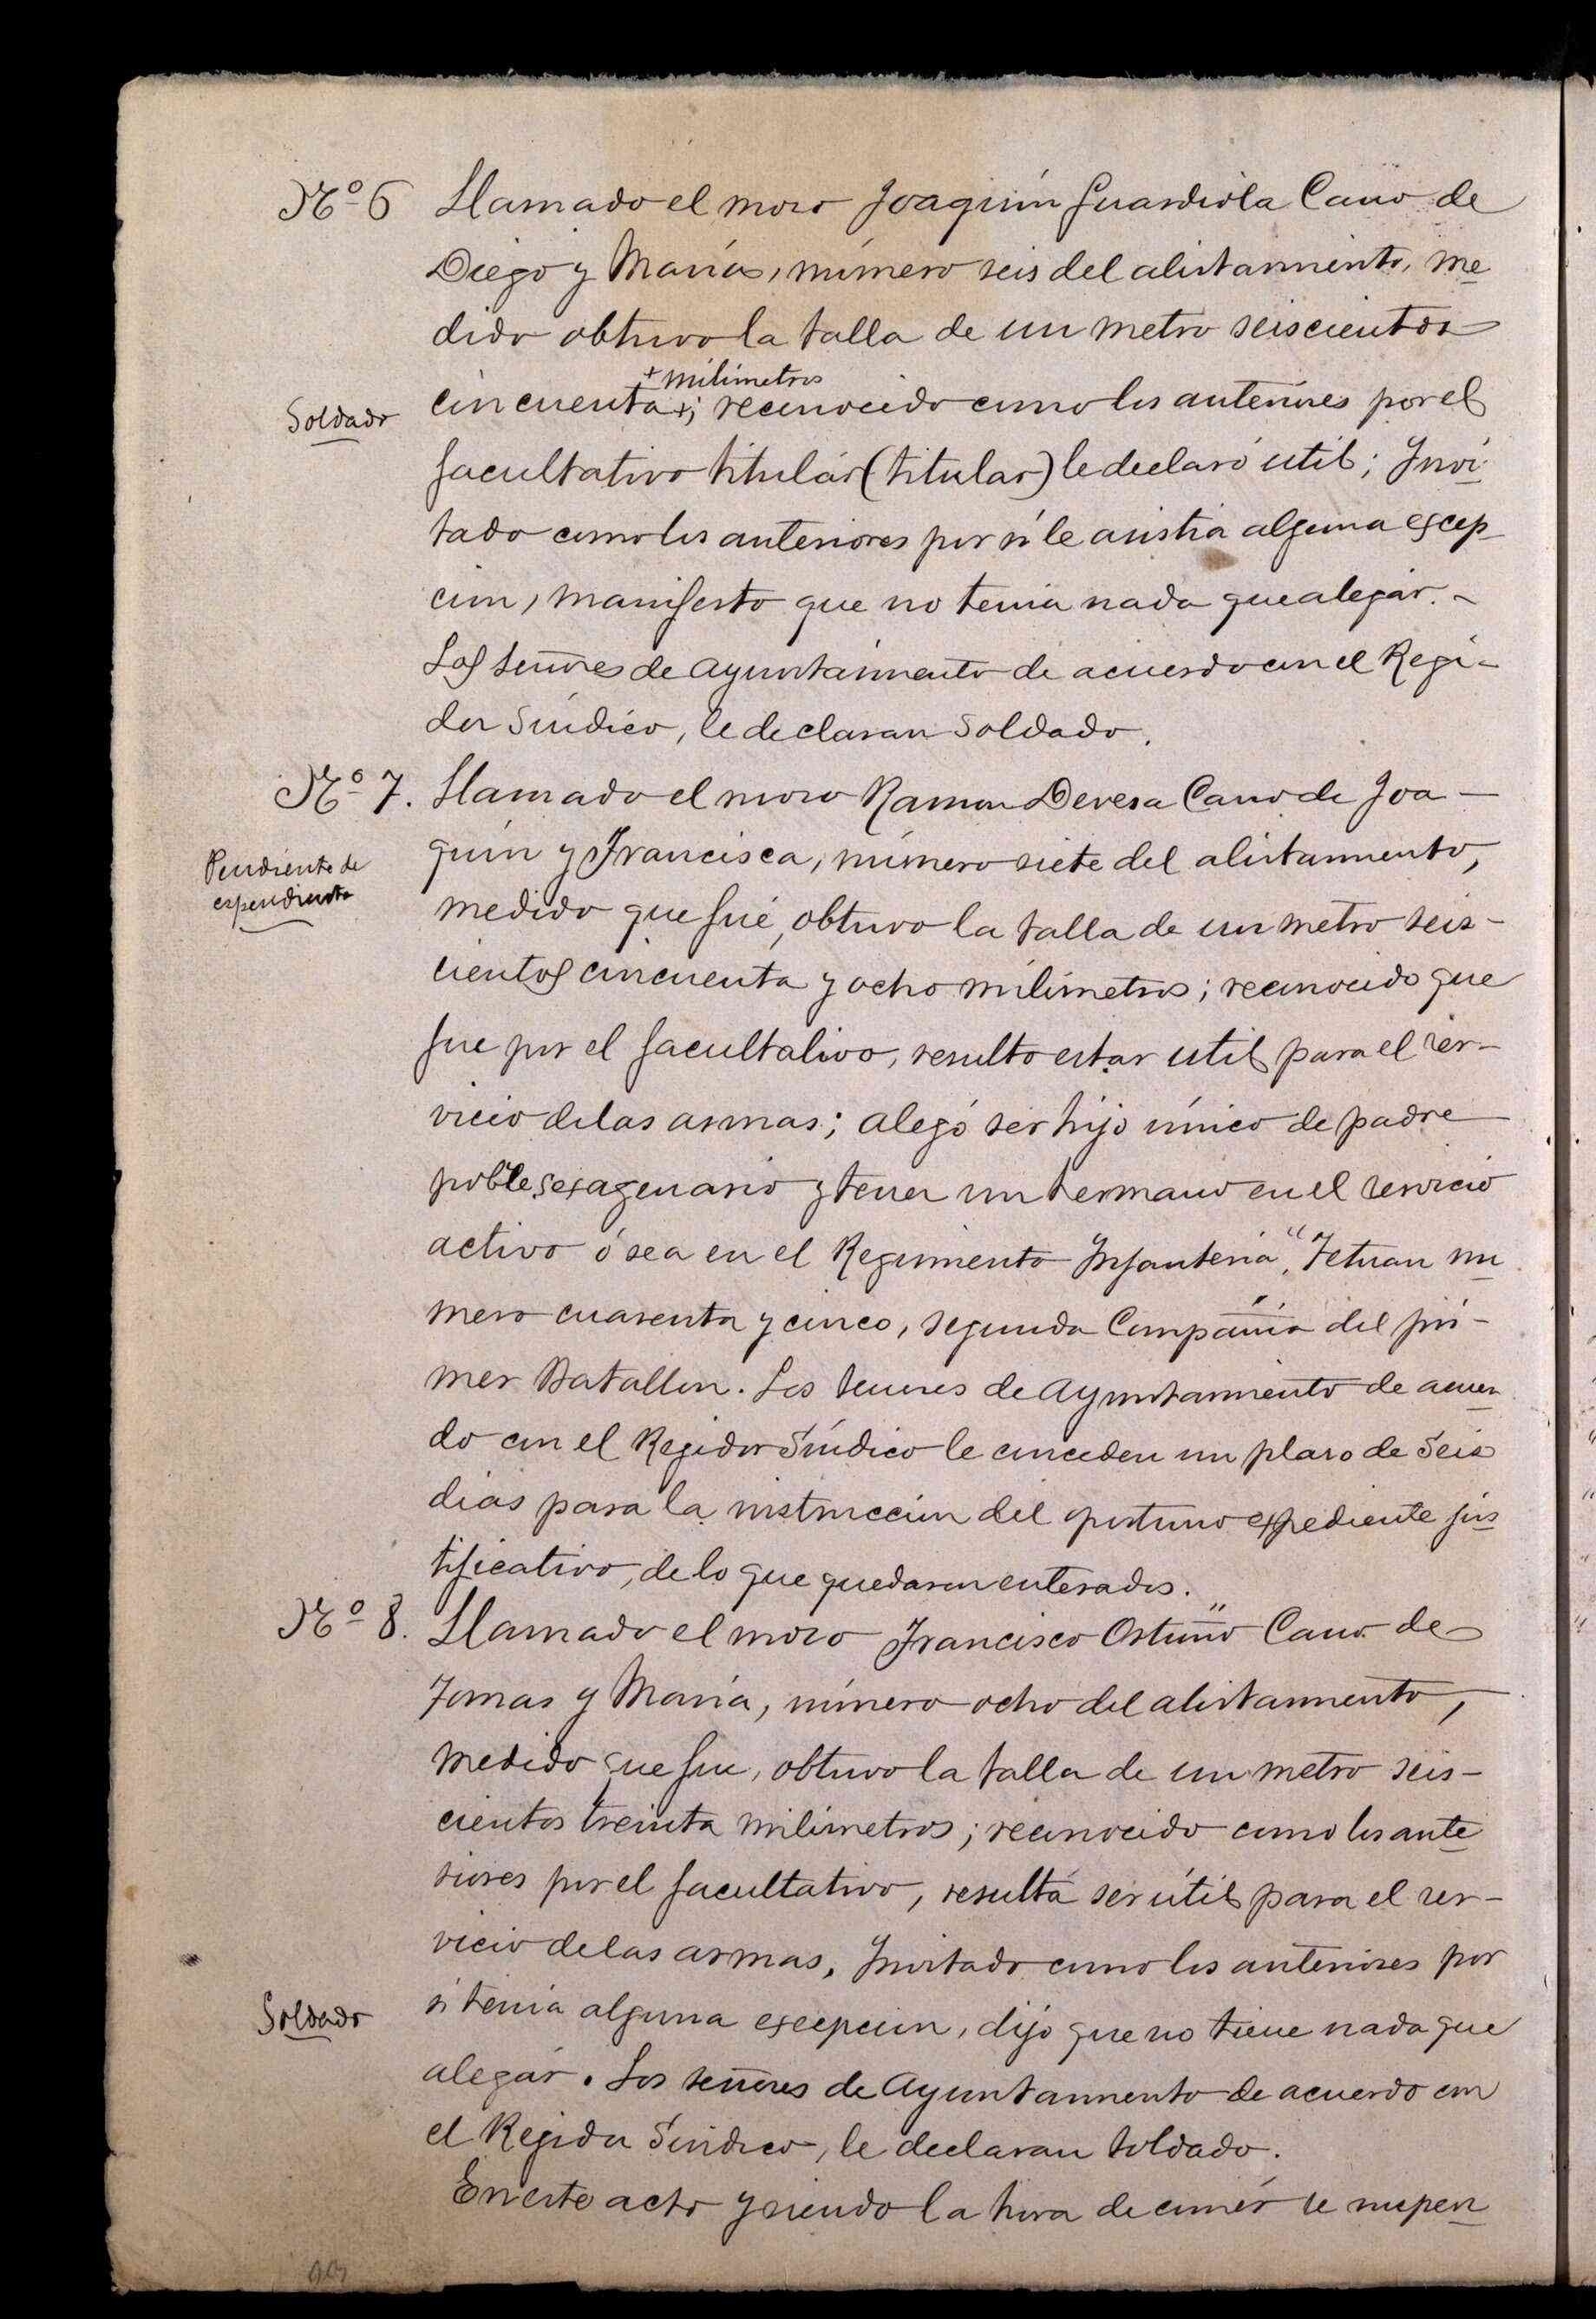 Nº 6 Llamado el mozo Joaquín Guardiola Cano de
Diego y María, número seis del alistamiento, me
dido obtuvo la talla de un metro seiscientos
+ milímetros
Soldado cincuenta+; reconocido como los anteriores por el
facultativo titulár (titular) le declaró util; Invi
tado como los anteriores por si le asistia alguna escep
cion, manifesto que no tenia nada que alegár. -
Los señores de Ayuntamiento de acuerdo con el Regi-
dor Síndico, le declaran Soldado.
Nº 7. Llamado el mozo Ramon Devesa Cano de Joa-
quín y Francisca, número siete del alistamiento,
Pendiente de
espendiente
medido que fué, obtuvo la talla de un metro seis-
cientos cincuenta y ocho milímetros; reconocido que
fue por el facultativo, resulto estar util para el ser-
vicio de las armas; alegó ser hijo único de padre
poble sexagenario y tener un hermano en el servicio
activo ó sea en el Regimiento Infantería "Tetuan nu
mero cuarenta y cinco, segunda Compañía del pri-
mer Batallon. Los señores de Ayuntamiento de acuer
do con el Regidor Síndico le conceden un plazo de Seis
dias para la instruccion del oportuno expediente jus
tificativo, de lo que quedaron enterados.
Nº 8. Llamado el mozo Francisco Ortuño Cano de
Tomas y María, número ocho del alistamiento,
medido que fue, obtuvo la talla de un metro seis-
cientos treinta milímetros; reconocido como los ante
riores por el facultativo, resultá ser útil para el ser-
vicio de las armas, Invitado como los anteriores por
Soldado si tenia alguna escepcion, dijo que no tiene nada que
alegár. Los señores de Ayuntamiento de acuerdo con
el Regidor Síndico, le declaran Soldado.
En este acto y siendo la hora de comér se suspen